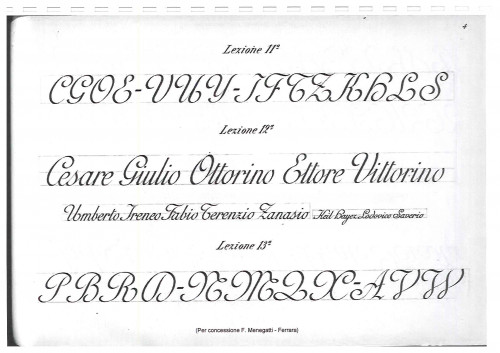 4
Lezione 11ª
CGOE-VUY-IFTZKHLS
Lezione 12ª
Cesare Giulio Ottorino Ettore Vittorino
Umberto Ireneo Fabio Terenzio Zanasio Lodovico Saverio
Lezione 13ª
PBRD-NMQX-AVW
(Per concessione F. Menegatti - Ferrara)